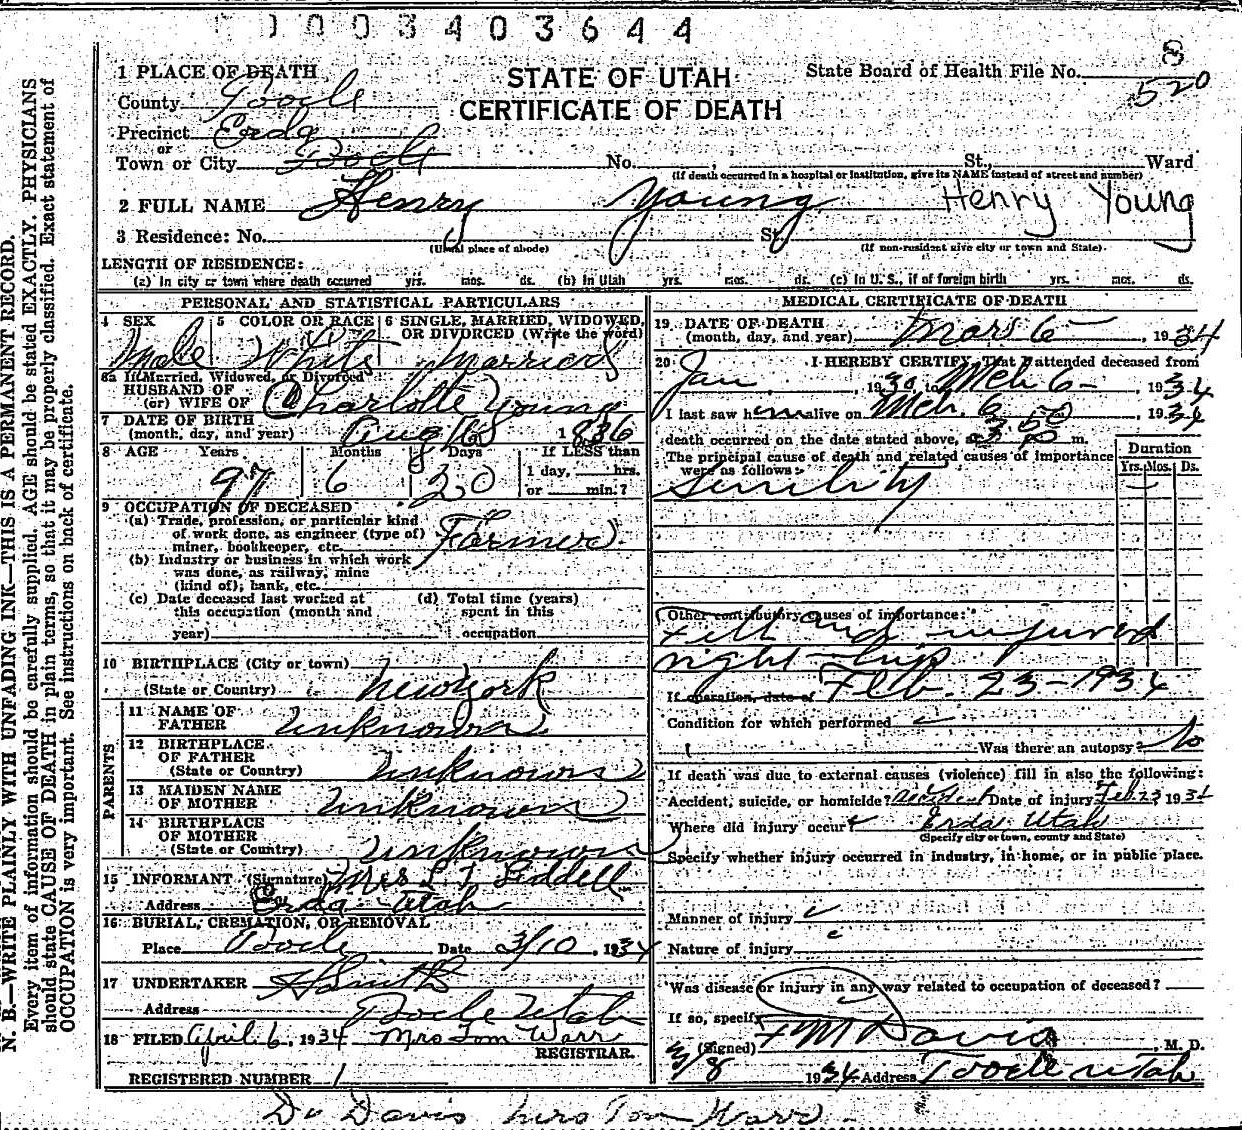 1 0 0 3 4 0 3 6 4 4
1 PLACE OF DEATH
STATE OF UTAH
CERTIFICATE OF DEATH
State Board of Health File No. 8
520
County Tooele
Precinct Erda
or
Town or City Tooele No. , St., Ward
(If death occurred in a hospital or institution, give its NAME instead of street and number)
2 FULL NAME Henry Young Henry Young
3 Residence: No. St.
(Usual place of abode) (If non-resident give city or town and State).
LENGTH OF RESIDENCE:
(a) In city or town where death occurred yrs. mos. ds. (b) In Utah yrs. mos. ds. (c) In U. S., if of foreign birth yrs. mos. ds.
PERSONAL AND STATISTICAL PARTICULARS
4 SEX 5 COLOR OR RACE 6 SINGLE, MARRIED, WIDOWED, OR DIVORCED (Write the word)
Male White Married
6a If Married, Widowed, or Divorced
HUSBAND OF
(or) WIFE OF Charlotte Young
7 DATE OF BIRTH
(month, day, and year) Aug 16 1836
8 AGE Years Months Days If LESS than
97 6 20 1 day, hrs.
or min.?
9 OCCUPATION OF DECEASED
(a) Trade, profession, or particular kind
of work done, as engineer (type of)
miner, bookkeeper, etc. Farmer
(b) Industry or business in which work
was done, as railway, mine
(kind of); bank, etc.
(c) Date deceased last worked at
this occupation (month and
year)
(d) Total time (years)
spent in this
occupation
10 BIRTHPLACE (City or town)
(State or Country) New York
PARENTS
11 NAME OF
FATHER Unknown
12 BIRTHPLACE
OF FATHER
(State or Country) Unknown
13 MAIDEN NAME
OF MOTHER Unknown
14 BIRTHPLACE
OF MOTHER
(State or Country) Unknown
15 INFORMANT (Signature) Mrs L. T. Liddell
Address Erda Utah
16 BURIAL, CREMATION, OR REMOVAL
Place Tooele Date 3/10, 1934
17 UNDERTAKER
Address Tooele Utah
18 FILED April 6, 1934 Mrs Tom Warr
REGISTRAR.
REGISTERED NUMBER 1
MEDICAL CERTIFICATE OF DEATH
19 DATE OF DEATH
(month, day, and year) Mar 6 , 1934
20 I HEREBY CERTIFY, That I attended deceased from
Jan , 1930 to Mch 6 - 1934
I last saw him alive on Mch. 6 , 1934
death occurred on the date stated above, at 3 50 P m.
The principal cause of death and related causes of importance
were as follows:
Duration
Yrs. Mos. Ds.
Senility
Other contributory causes of importance:
Fell and injured
right hip
If operation, date of Feb. 23-1934
Condition for which performed
Was there an autopsy? No
If death was due to external causes (violence) fill in also the following:
Accident, suicide, or homicide? accident Date of injury Feb 23 1934
Where did injury occur? Erda Utah
(Specify city or town, county and State)
Specify whether injury occurred in industry, in home, or in public place.
Manner of injury
Nature of injury
Was disease or injury in any way related to occupation of deceased?
If so, specify
(Signed) F M Davis , M. D.
3/8 1934 Address Tooele Utah
Dr Davis Mrs Tom Warr
N. B.—WRITE PLAINLY WITH UNFADING INK—THIS IS A PERMANENT RECORD.
Every item of information should be carefully supplied. AGE should be stated EXACTLY. PHYSICIANS
should state CAUSE OF DEATH in plain terms, so that it may be properly classified. Exact statement of
OCCUPATION is very important. See instructions on back of certificate.